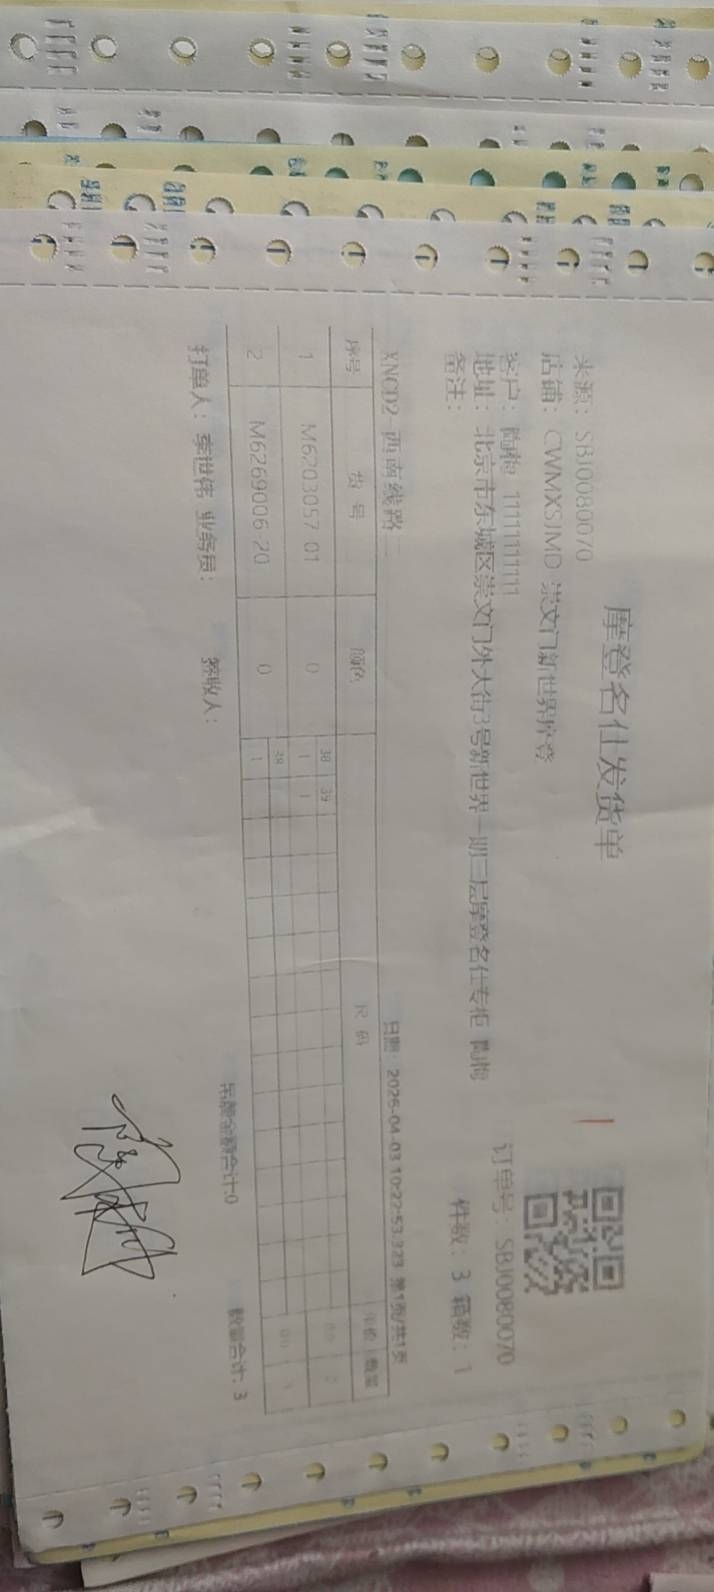 摩登名仕发货单
来源：SBJ0080070
店铺：CWMXSJMD 崇文门新世界摩登
订单号：SBJ0080070
客户：陶梅 1111111111
地址：北京市东城区崇文门外大街3号新世界一期三层摩登名仕专柜 陶梅
件数：3 箱数：1
备注：
XNCD2-西南线路二
日期：2026-04-03 10:22:53.323 第1页/共1页
序号 货号 颜色 尺码 单价 数量
38 39
1 M6203057 01 0 1 1 2
39
2 M6269006-20 0 1 1
打单人：李世伟 业务员： 签收人： 吊牌金额合计:0 数量合计: 3